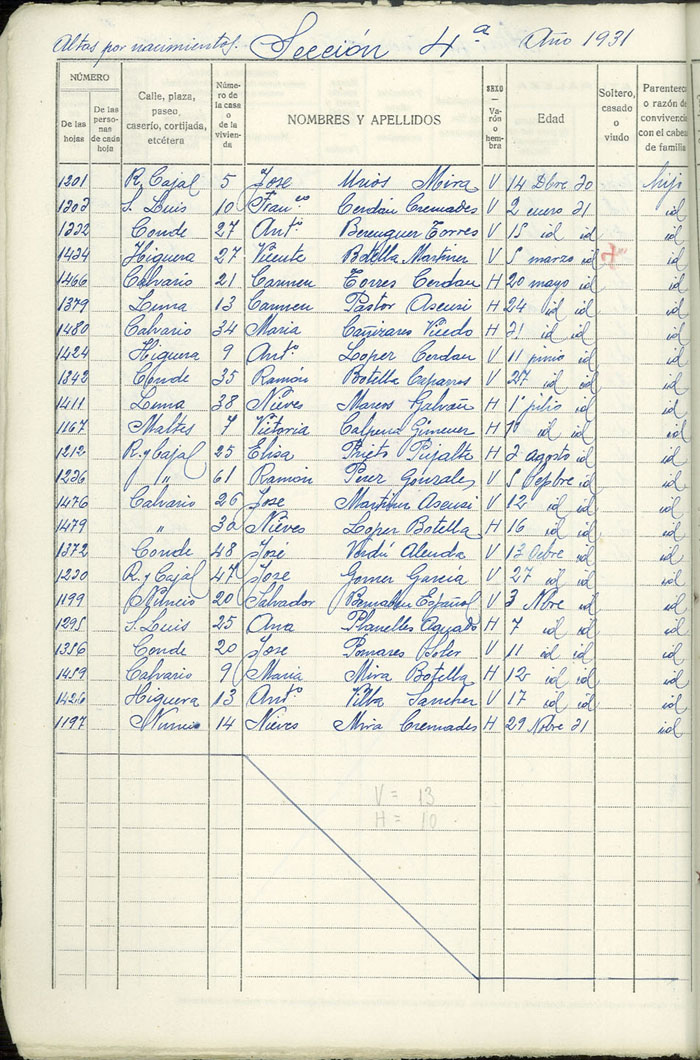 Altas por nacimientos. Sección 4ª Año 1931
NÚMERO
De las hojas
De las personas de cada hoja
Calle, plaza, paseo, caserío, cortijada, etcétera
Número de la casa o de la vivienda
NOMBRES Y APELLIDOS
SEXO — Varón o hembra
Edad
Soltero, casado o viudo
Parentesco o razón de convivencia con el cabeza de familia
1201 R. Cajal 5 Jose Urios Mira V 14 Dbre 30 hijo
1303 S. Luis 10 Franco Cerdán Cremades V 2 enero 31 id
1332 Conde 27 Antº Berenguer Torres V 15 id id id
1434 Higuera 27 Vicente Botella Martinez V 5 marzo id id
1466 Calvario 21 Carmen Torres Cerdan H 20 mayo id id
1379 Luna 13 Carmen Pastor Asensi H 24 id id id
1480 Calvario 34 Maria Cañizares Vicedo H 31 id id id
1424 Higuera 9 Antº Lopez Cerdan V 11 junio id id
1342 Conde 35 Ramón Botella Caparros V 27 id id id
1411 Luna 38 Nieves Marcos Galvañ H 1º julio id id
1167 Maltes 7 Victoria Calpena Gimenez H 1º id id id
1212 R. y Cajal 25 Elisa Prieto Pujalte H 3 agosto id id
1236 " 61 Ramón Perez Gonzalez V 5 Sepbre id id
1476 Calvario 26 Jose Martinez Asensi V 12 id id id
1479 " 30 Nieves Lopez Botella H 16 id id id
1372 Conde 48 José Verdú Alenda V 13 Octbre id id
1230 R. y Cajal 47 Jose Gomez García V 27 id id id
1199 Nuncio 20 Salvador Bernabeu Español V 3 Nbre id id
1295 S. Luis 25 Ana Planelles Aguado H 7 id id id
1356 Conde 20 Jose Pomares Soler V 11 id id id
1459 Calvario 9 Maria Mira Botella H 12 id id id
1426 Higuera 13 Antº Villa Sanchez V 17 id id id
1197 Nuncio 14 Nieves Mira Cremades H 29 Nobre 31 id
V = 13
H = 10